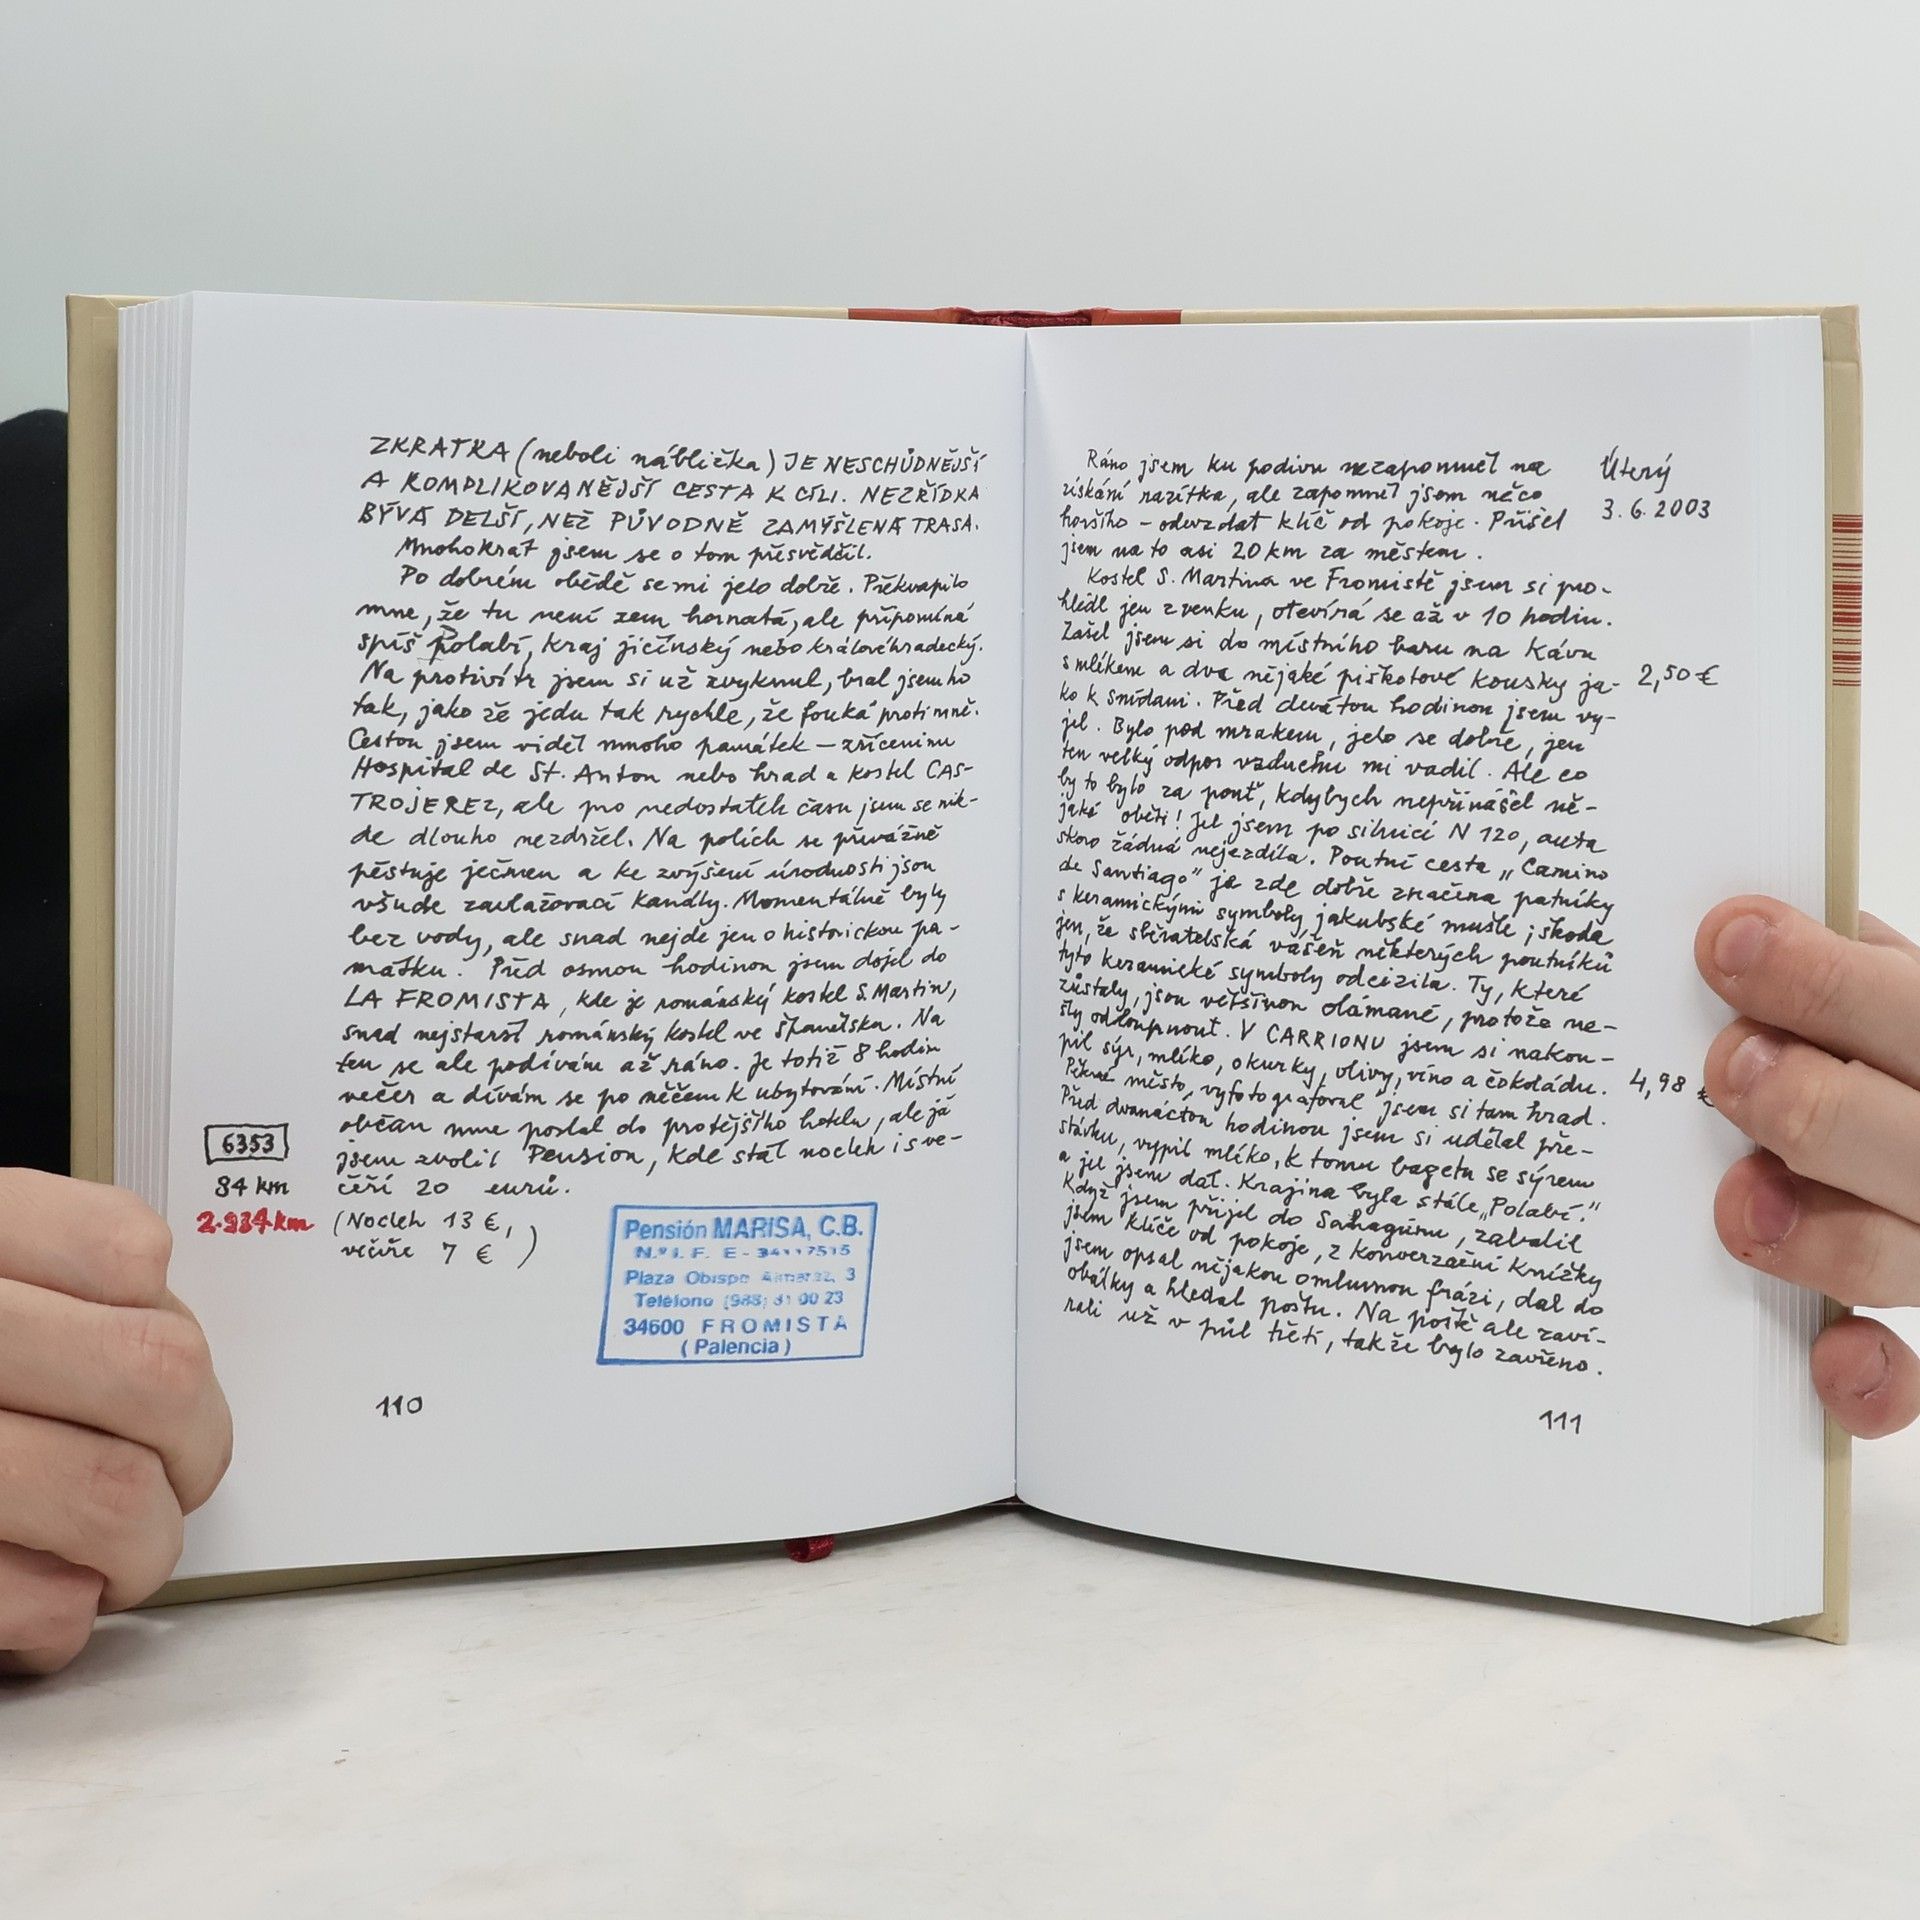 ZKRATKA (neboli náblížka) JE NESCHŮDNĚJŠÍ
A KOMPLIKOVANĚJŠÍ CESTA K CÍLI. NEZŘÍDKA
BÝVÁ DELŠÍ, NEŽ PŮVODNĚ ZAMÝŠLENÁ TRASA.
Mnohokrát jsem se o tom přesvědčil.
Po dobrém obědě se mi jelo dobře. Překvapilo
mne, že tu není zem hornatá, ale připomíná
spíš Polabí, kraj jičínský nebo královéhradecký.
Na protivítr jsem si už zvyknul, bral jsem ho
tak, jako že jedu tak rychle, že fouká proti mně.
Cestou jsem viděl mnoho památek – zříceninu
Hospital de St. Anton nebo hrad a kostel CAS-
TROJEREZ, ale pro nedostatek času jsem se nik-
de dlouho nezdržel. Na polích se převážně
pěstuje ječmen a ke zvýšení úrodnosti jsou
všude zavlažovací kanály. Momentálně byly
bez vody, ale snad nejde jen o historickou pa-
mátku. Před osmou hodinou jsem dojel do
LA FROMISTA, kde je románský kostel S. Martin,
snad nejstarší románský kostel ve Španělsku. Na
ten se ale podívám až ráno. Je totiž 8 hodin
večer a dívám se po něčem k ubytování. Místní
občan mne poslal do protějšího hotelu, ale já
jsem zvolil Pension, kde stál nocleh i s ve-
čeří 20 eurů.
6353
84 km
2.934 km
(Nocleh 13 €,
večeře 7 € )
Pensión MARISA, C.B.
N.º I. F. E- 34117515
Plaza Obispo Almaraz, 3
Teléfono (988) 81 00 23
34600 FROMISTA
(Palencia)
110
Úterý
3.6.2003
Ráno jsem ku podivu nezapomněl na
získání razítka, ale zapomněl jsem něco
horšího – odevzdat klíč od pokoje. Přišel
jsem na to asi 20 km za městem.
Kostel S. Martina ve Fromistě jsem si pro-
hlédl jen zvenku, otevírá se až v 10 hodin.
Zašel jsem si do místního baru na kávu
s mlékem a dva nějaké piškotové kousky ja- 2,50 €
ko k snídani. Před devátou hodinou jsem vy-
jel. Bylo pod mrakem, jelo se dobře, jen
ten velký odpor vzduchu mi vadil. Ale co
by to bylo za pouť, kdybych nepřinášel ně-
jaké oběti! Jel jsem po silnici N 120, auta
skoro žádná nejezdila. Poutní cesta „Camino
de Santiago" je zde dobře značena patníky
s keramickými symboly jakubské mušle; škoda
jen, že sběratelská vášeň některých poutníků
tyto keramické symboly odcizila. Ty, které
zůstaly, jsou většinou olámané, protože ne-
šly odloupnout. V CARRIONU jsem si nakou-
pil sýr, mlíko, okurky, olivy, víno a čokoládu. 4,98 €
Pěkné město, vyfotografoval jsem si tam hrad.
Před dvanáctou hodinou jsem si udělal pře-
stávku, vypil mlíko, k tomu bagetu se sýrem
a jel jsem dál. Krajina byla stále „Polabí."
Když jsem přijel do Sahagúnu, zabalil
jsem klíče od pokoje, z konverzační knížky
jsem opsal nějakou omluvnou frázi, dal do
obálky a hledal poštu. Na poště ale zaví-
rali už v půl třetí, takže bylo zavřeno.
111